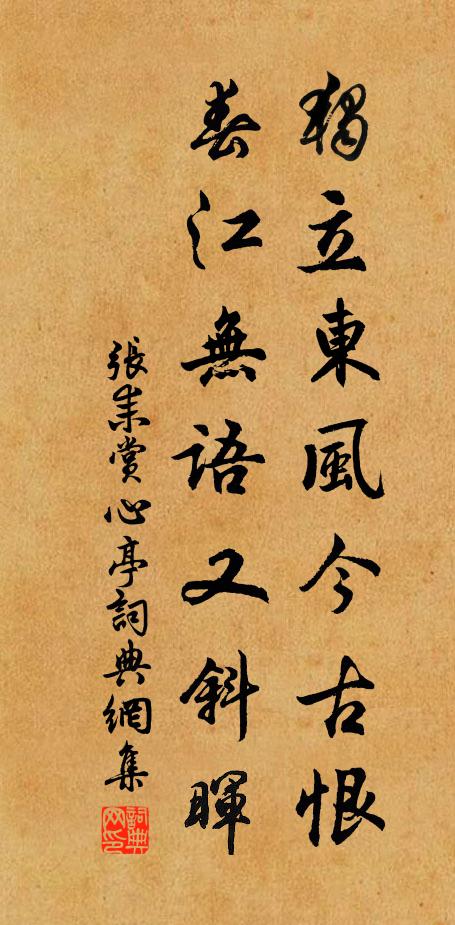 獨立東風今古恨
春江無語又斜暉
張耒賞心亭詞典網集
詞典網印